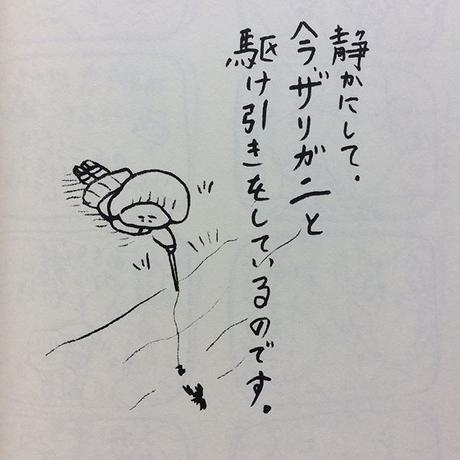 静かにして。
今ザリガニと
駆け引きをしているのです。